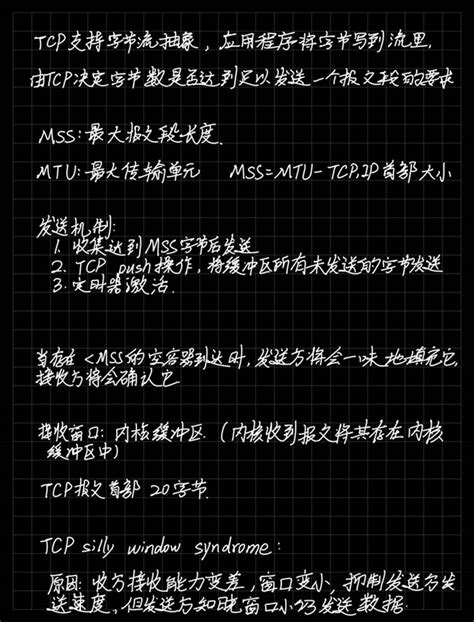 TCP支持字节流抽象，应用程序将字节写到流里.
由TCP决定字节数是否达到足以发送一个报文段的要求
MSS:最大报文段长度.
MTU:最大传输单元 MSS=MTU-TCP,IP首部大小
发送机制:
1. 收集达到MSS字节后发送
2. TCP push操作，将缓冲区所有未发送的字节发送
3. 定时器激活.
当存在<MSS的空容器到达时，发送方将会一味地填充它,
接收方将会确认它
接收窗口: 内核缓冲区.（内核收到报文将其存在内核
缓冲区中）
TCP报文首部 20字节.
TCP silly window syndrome:
原因: 收方接收能力变差，窗口变小，抑制发送方发
送速度，但发送方知晓窗口小仍发送数据.